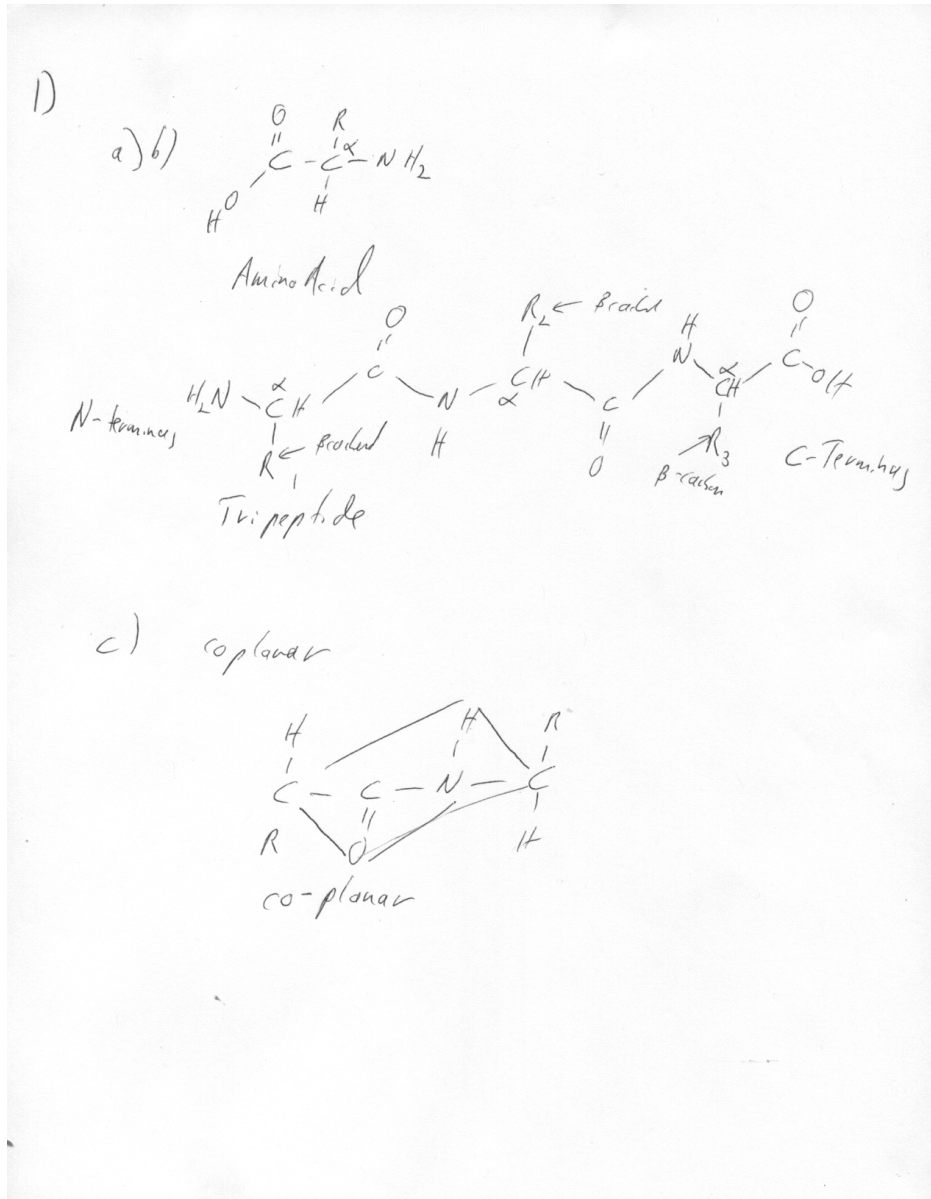 1)
a) b)
O R
C - C α - NH2
H O H
Amino Acid
R2 ← β carbon H O
O N C OH
H2N α CH C N CH α C α CH
N-terminus R1 ← β carbon H O R3 C-Terminus
β-carbon
Tripeptide
c) coplanar
H H R
C - C - N - C
R O H
co-planar